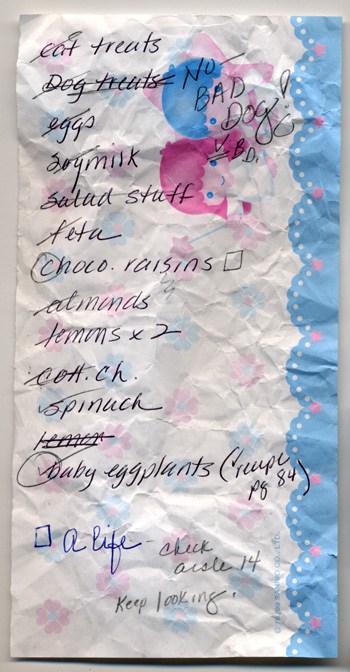 cat treats
Dog treats NO
BAD
DOG!
eggs
B.D.
soymilk
salad stuff
feta
choco. raisins
almonds
lemons x 2
cott. ch.
spinach
lemon
baby eggplants (recipe
pg 84)
A life - check
aisle 14
Keep looking.